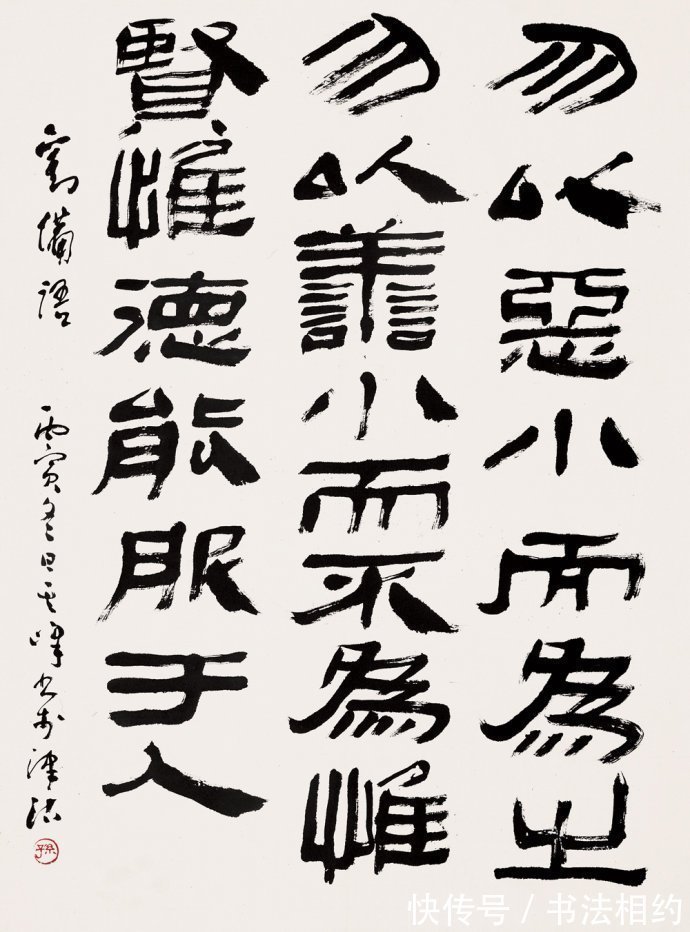 勿以惡小而為之
勿以善小而不為惟
賢惟德能服于人
劉備語 丙寅冬日其峰书於津沽
孫
快传号 / 书法相约